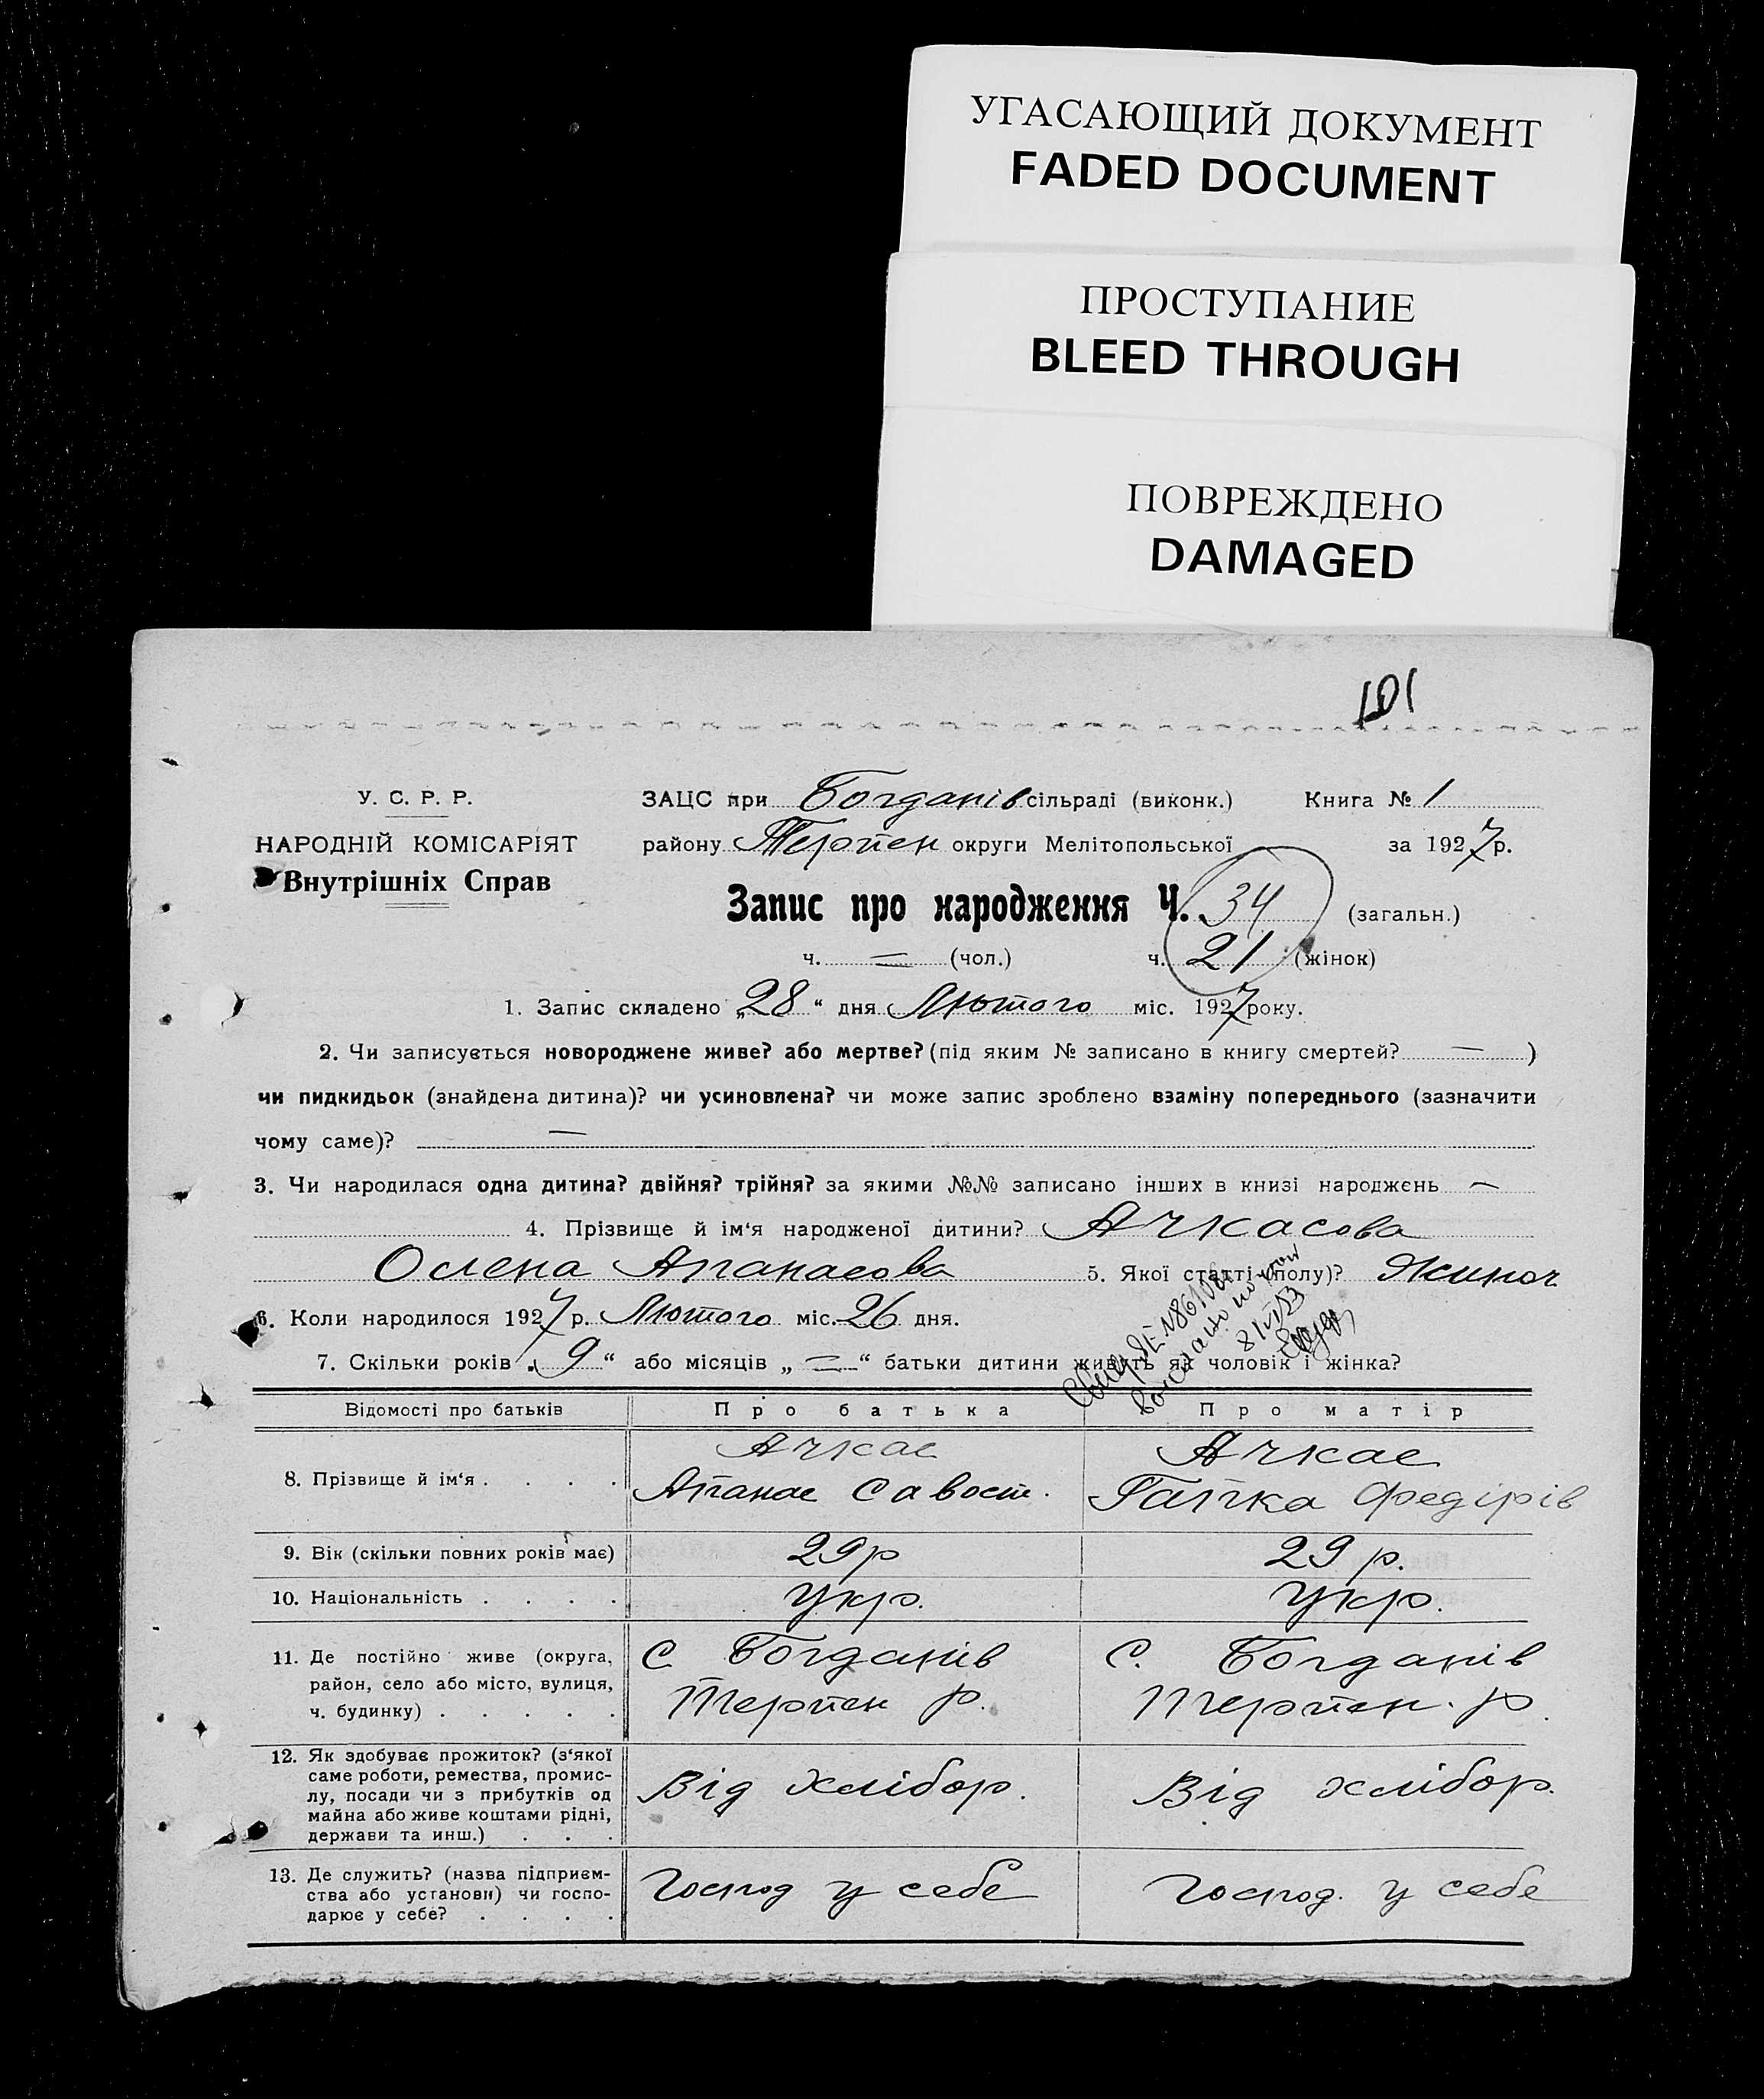 УГАСАЮЩИЙ ДОКУМЕНТ
FADED DOCUMENT
ПРОСТУПАНИЕ
BLEED THROUGH
ПОВРЕЖДЕНО
DAMAGED
101
У. С. Р. Р.
НАРОДНІЙ КОМІСАРІЯТ
Внутрішніх Справ
ЗАЦС при Богданів сільраді (виконк.) Книга № 1
району Терпен округи Мелітопольської за 1927 р.
Запис про народження Ч. 34 (загальн.)
ч. — (чол.) ч. 21 (жінок)
1. Запис складено „28“ дня Лютого міс. 1927 року.
2. Чи записується новороджене живе? або мертве? (під яким № записано в книгу смертей? — )
чи пидкидьок (знайдена дитина)? чи усиновлена? чи може запис зроблено взаміну попереднього (зазначити
чому саме)? —
3. Чи народилася одна дитина? двійня? трійня? за якими №№ записано інших в книзі народжень —
4. Прізвище й ім‘я народженої дитини? Ачкасова
Олена Апанасова 5. Якої статті (полу)? Жиноч
6. Коли народилося 1927 р. Лютого міс. 26 дня.
7. Скільки років „ 9 “ або місяців „ — “ батьки дитини живуть як чоловік і жінка?
Відомості про батьків Про батька Про матір
8. Прізвище й ім‘я . . . . Ачкас Ачкас
Апанас Савост. Гапка Федірів
9. Вік (скільки повних років має) 29 р 29 р.
10. Національність . . . . укр. укр.
11. Де постійно живе (округа,
район, село або місто, вулиця,
ч. будинку) . . . . .
С Богданів С. Богданів
Терпен р. Терпен. р.
12. Як здобуває прожиток? (з‘якої
саме роботи, ремества, промис-
лу, посади чи з прибутків од
майна або живе коштами рідні,
держави та инш.) . . .
Від хлібор. Від хлібор.
13. Де служить? (назва підприєм-
ства або установи) чи госпо-
дарює у себе? . . . .
Господ у себе Господ. у себе